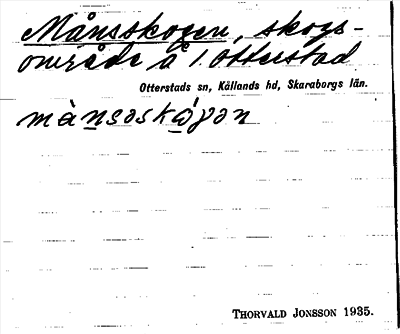 Månsskogen, skogs-
område å 1. Otterstad
Otterstads sn, Kållands hd, Skaraborgs län.
mànsəskǿgən
THORVALD JONSSON 1935.